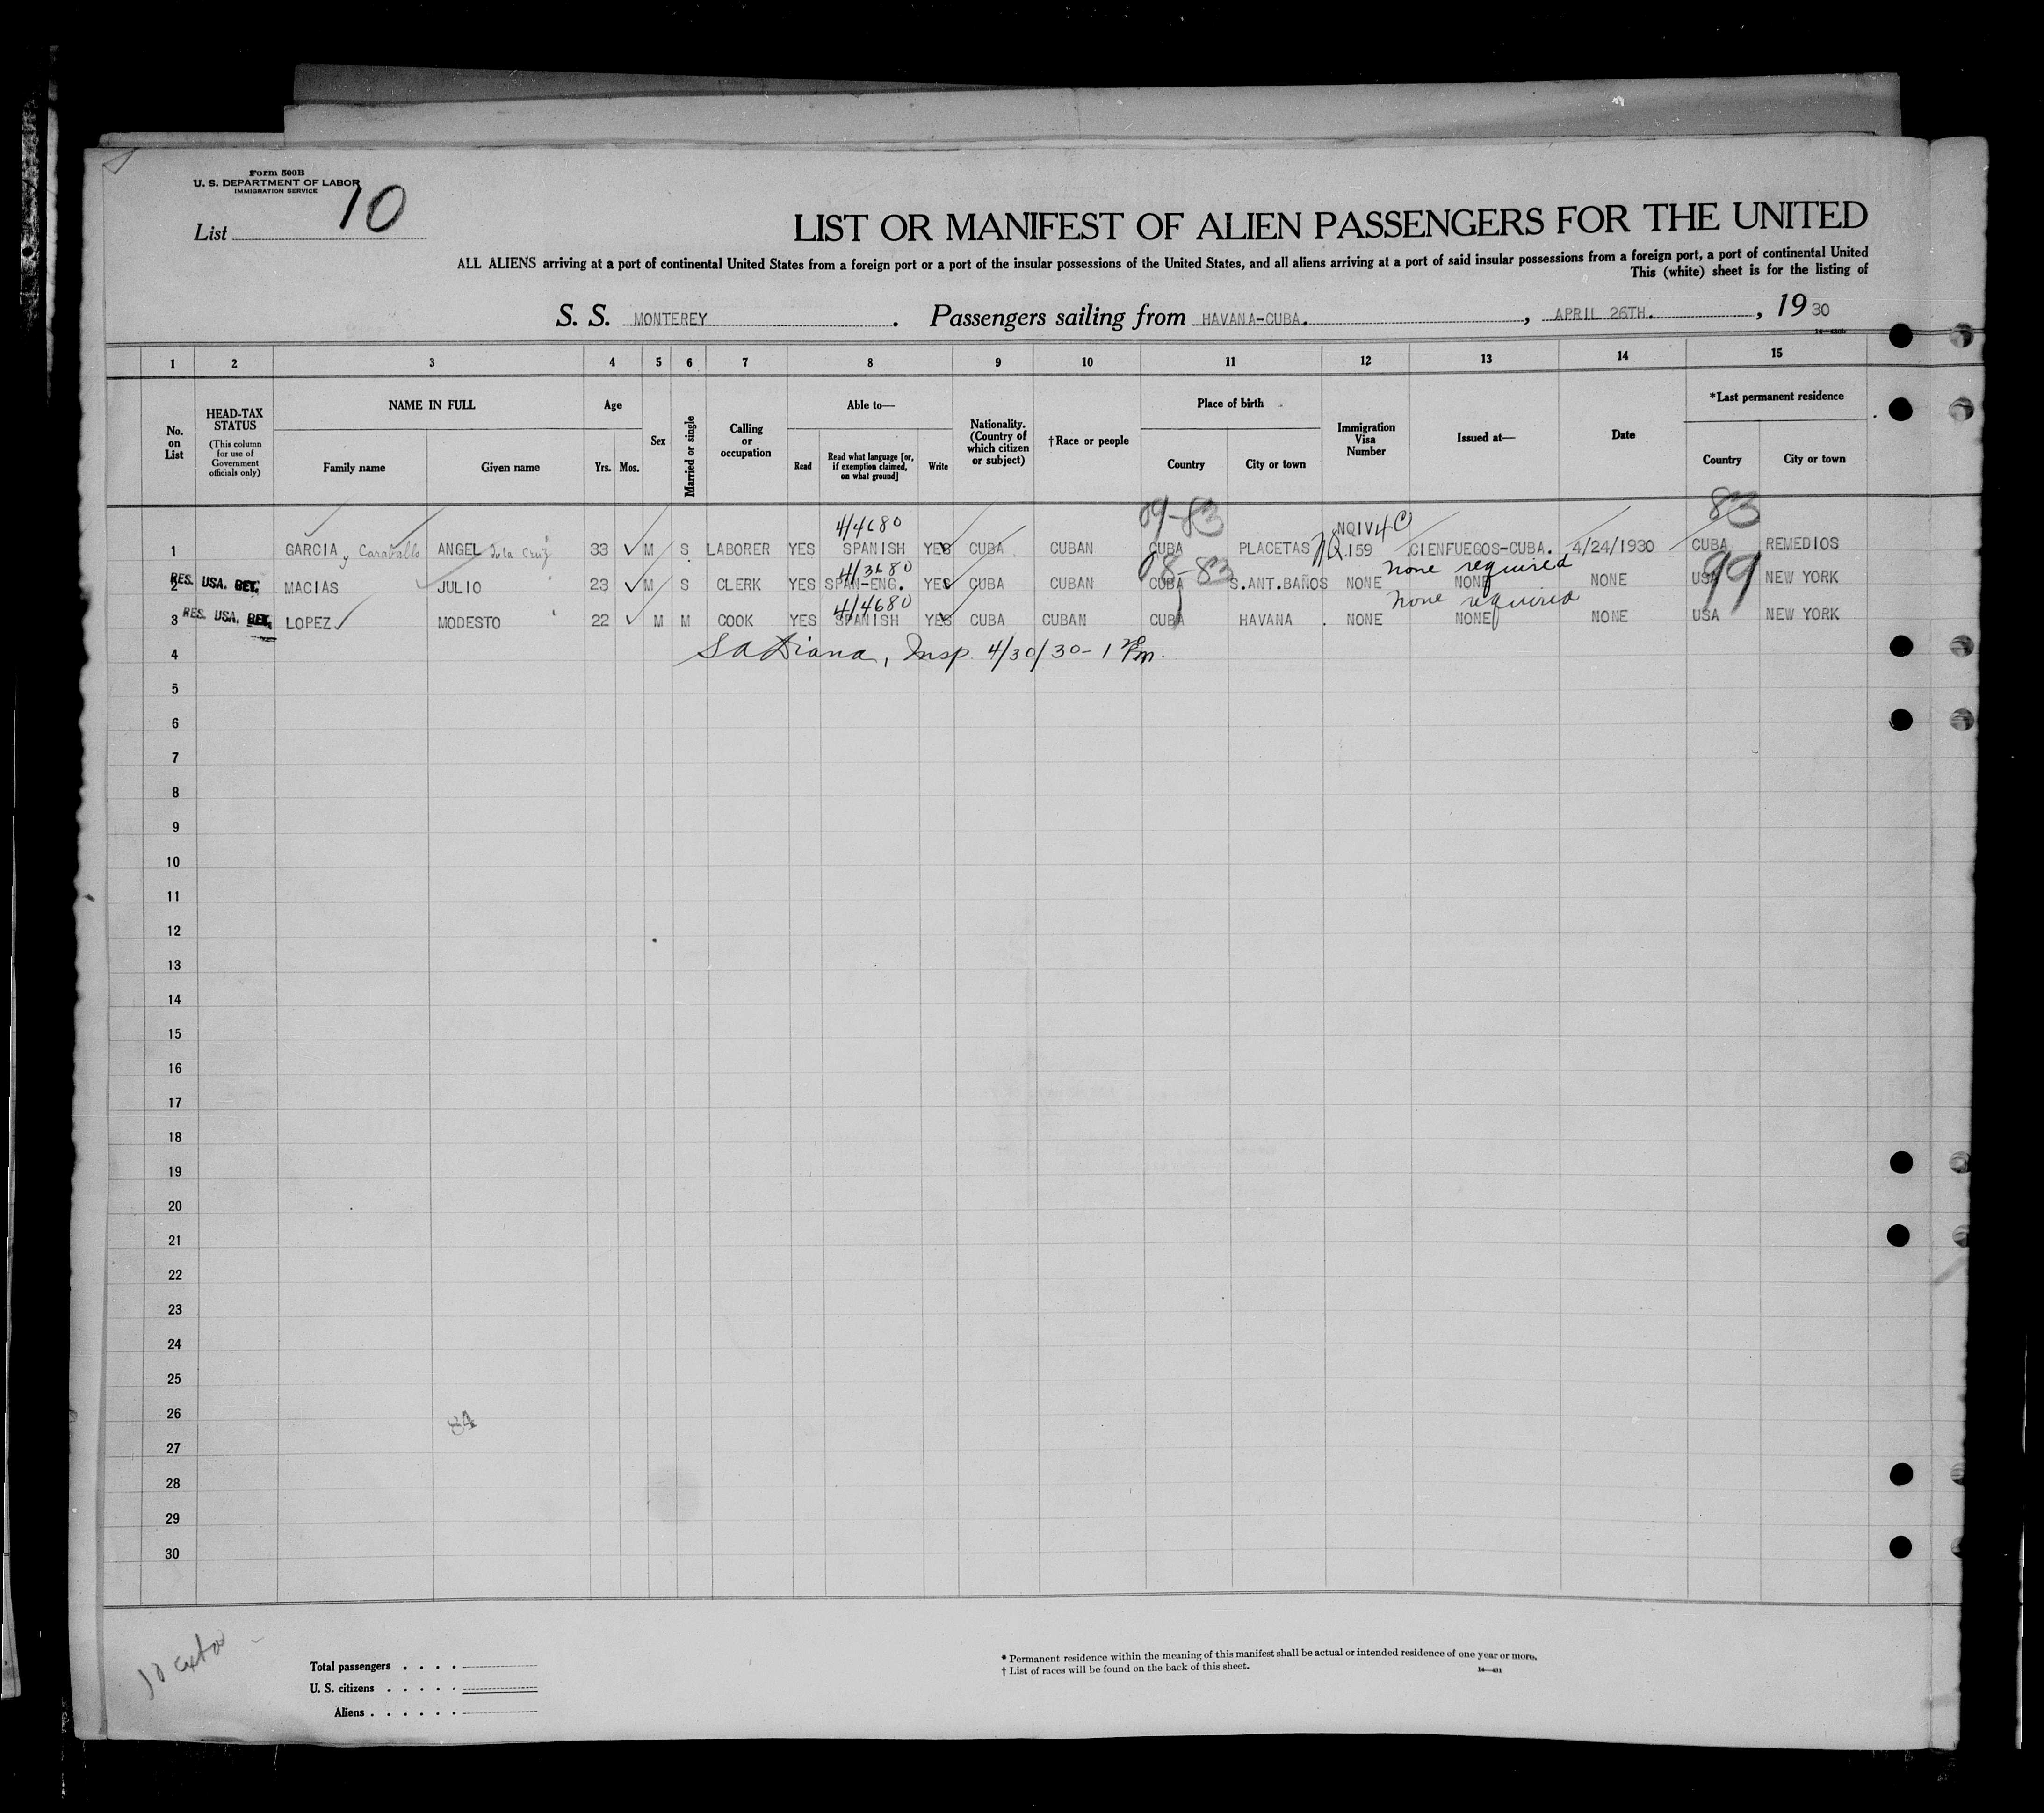 Form 500B
U. S. DEPARTMENT OF LABOR
IMMIGRATION SERVICE
List 10
LIST OR MANIFEST OF ALIEN PASSENGERS FOR THE UNITED
ALL ALIENS arriving at a port of continental United States from a foreign port or a port of the insular possessions of the United States, and all aliens arriving at a port of said insular possessions from a foreign port, a port of continental United
This (white) sheet is for the listing of
S. S. MONTEREY. Passengers sailing from HAVANA-CUBA., APRIL 26TH., 1930
1 2 3 4 5 6 7 8 9 10 11 12 13 14 15
No. on List
HEAD-TAX STATUS (This column for use of Government officials only)
NAME IN FULL
Family name Given name
Age
Yrs. Mos.
Sex
Married or single
Calling or occupation
Able to—
Read Read what language [or, if exemption claimed, on what ground] Write
Nationality. (Country of which citizen or subject)
†Race or people
Place of birth
Country City or town
Immigration Visa Number
Issued at—
Date
*Last permanent residence
Country City or town
4/4680 09-83 NQIV 4 C 83
1 GARCIA y Caraballo ANGEL de la Cruz 33 M S LABORER YES SPANISH YES CUBA CUBAN CUBA PLACETAS NQ. 159 CIENFUEGOS-CUBA. 4/24/1930 CUBA REMEDIOS
4/3680 08-83 None required 99
2 RES. USA. RET. MACIAS JULIO 23 M S CLERK YES SPAN-ENG. YES CUBA CUBAN CUBA S.ANT.BAÑOS NONE NONE NONE USA NEW YORK
4/4680 None required
3 RES. USA. RET. LOPEZ MODESTO 22 M M COOK YES SPANISH YES CUBA CUBAN CUBA HAVANA. NONE NONE NONE USA NEW YORK
4 Insp. 4/30/30 - 1 Pm.
5
6
7
8
9
10
11
12
13
14
15
16
17
18
19
20
21
22
23
24
25
26 84
27
28
29
30
Total passengers
U. S. citizens
Aliens
* Permanent residence within the meaning of this manifest shall be actual or intended residence of one year or more.
† List of races will be found on the back of this sheet.